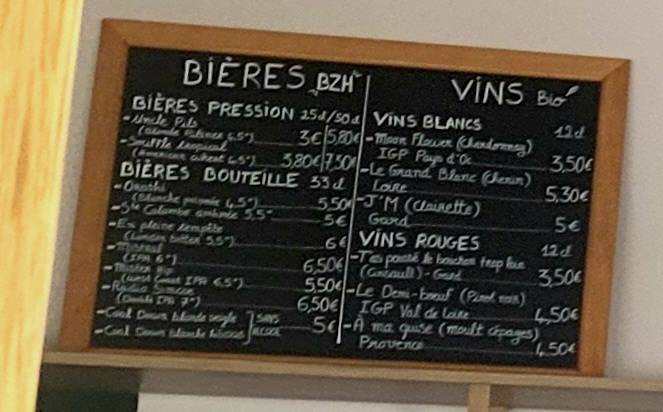 BIÈRES BZH
BIÈRES PRESSION 25d/50d
- Uncle Pils
(Blonde 4,5°) 3€/5,80€
- Souffle tropical
(American wheat 4,5°) 3,80€/7,50€
BIÈRES BOUTEILLE 33d
(Blanche 4,5°) 5,50€
- Ste Colombe ambrée 5,5° 5€
- En pleine tempête
(bitter 5,5°) 6€
- Mistral
(IPA 6°) 6,50€
- Mister Hip
(West Coast IPA 6,5°) 5,50€
- Radio
(Double IPA 7°) 6,50€
- Cool Down blonde seigle ] SANS
- Cool Down blonde ] ALCOOL 5€
VINS Bio
VINS BLANCS 12d
- Moon Flower (Chardonnay)
IGP Pays d'Oc 3,50€
- Le Grand Blanc (Chenin)
Loire 5,30€
- J'M (Clairette)
Gard 5€
VINS ROUGES 12d
- T'as poussé le bouchon trop loin
(Cinsault) - Gard 3,50€
- Le Demi-bœuf (Pinot noir)
IGP Val de Loire 4,50€
- À ma guise (moult cépages)
Provence 4,50€